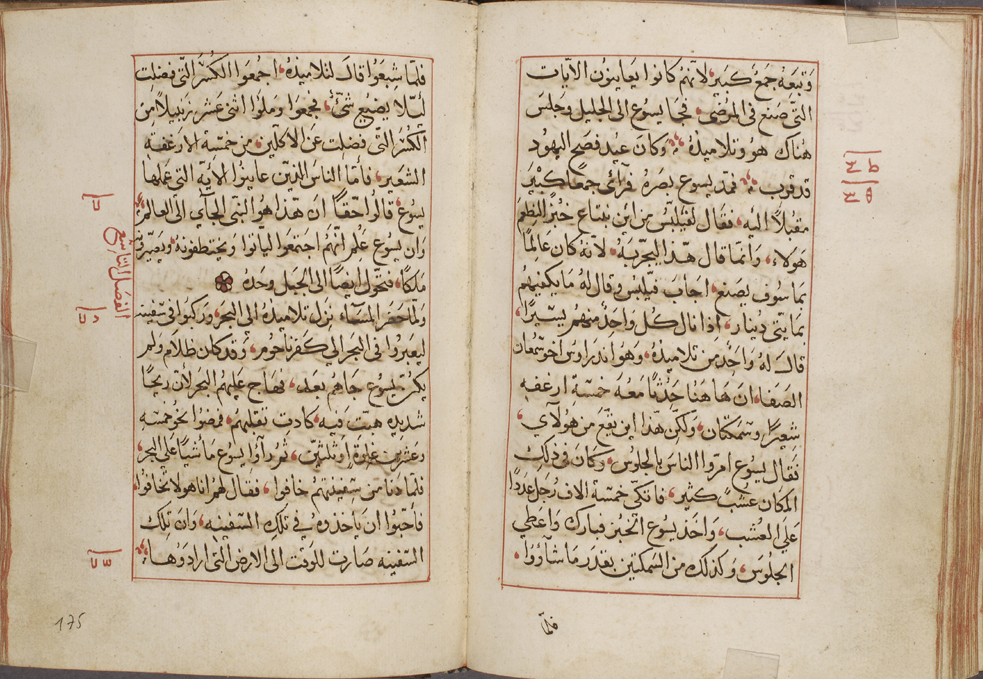 وتبعه جمع كبير لانهم كانوا يعاينون الايات
التي صنع في المرضى، فجا يسوع الى الجبل وجلس
هناك هو وتلاميذه وكان عيد فصح اليهود
قد قرب فمد يسوع بصره فراي جمعا كبير
مقبلا اليه، فقال لفيلبس من اين نبتاع خبزا لنطعم
هولاء، وانما قال هذا ليجربه لانه كان عالما
بما سوف يصنع، اجاب فيلبس وقال له ما يكفيهم
بمايتي دينار، اذا نال كل واحد منهم يسيرا،
قال له واحد من تلاميذه، وهو اندراوس اخو شمعان
الصفا، ان هاهنا حدثا معه خمسة ارغفه
شعيرا وسمكتان، ولكن هذا اين يقع من هولاي،
فقال يسوع امروا الناس بالجلوس، وكان في ذلك
المكان عشب كثير، فاتكى خمسة الاف رجل عددا
على العشب، واخذ يسوع الخبز فبارك واعطي
الجلوس، وكذلك من السمكتين بقدر ما شاؤوا،
فلما
فلما شبعوا قال لتلاميذه، اجمعوا الكسر التي فضلت
ليلا يضيع شي، فجمعوا وملوا اثنى عشر زنبيلا من
الكسر التي فضلت عن الاكلين، من خمسة الارغفه
الشعير، فاما الناس الذين عاينوا الايه التي عملها
يسوع، قالوا حقا ان هذا هو النبي الجاي الى العالم
وان يسوع علم انهم اجتمعوا لياتوا ويختطفونه ويصيروه
ملكا، فتحول ايضا الى الجبل وحده
الفصل التاسع
ولما حضر المساء نزل تلاميذه الى البحر، وركبوا في سفينه
ليعبروا في البحر الى كفرناحوم، وقد كان ظلام ولم
يكن يسوع جاهم بعد، فهاج عليهم البحر لان ريحا
شديده هبت فيه كادت تقلبهم، فمضوا نحو خمسه
وعشرين غلوة او ثلثين، ثم رآوا يسوع ماشيا على البحر
فلما دنا من سفينتهم خافوا، فقال لهم انا هو لا تخافوا
فاحبوا ان ياخذوه في تلك السفينه، وان تلك
السفينه صارت للوقت الى الارض التي ارادوها
175